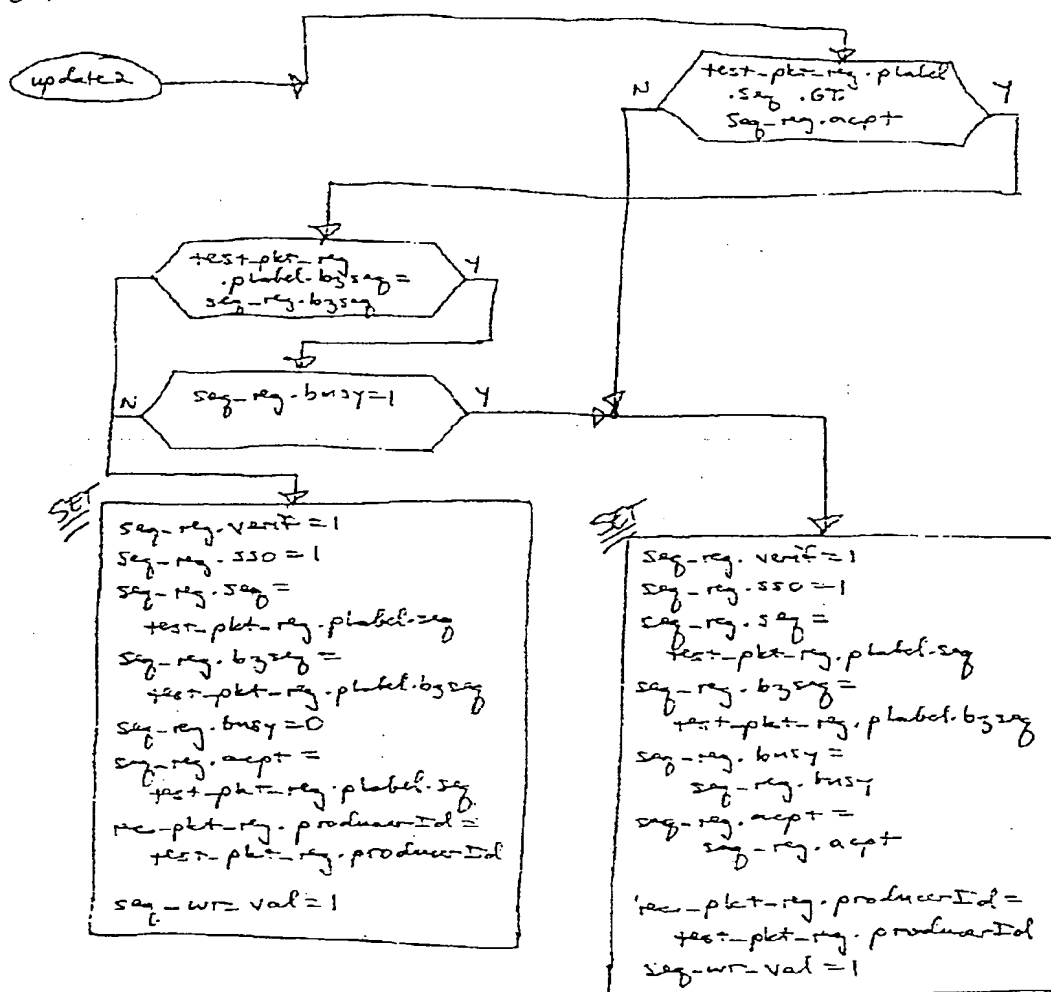 update2
test_pkt_reg.plabel
.seq .GT.
seq_reg.acpt
N
Y
test_pkt_reg
.plabel.bzseq =
seq_reg.bzseq
Y
seq_reg.busy=1
N
Y
SET
seq_reg.verif=1
seq_reg.sso=1
seq_reg.seq=
test_pkt_reg.plabel.seq
seq_reg.bzseq=
test_pkt_reg.plabel.bzseq
seq_reg.busy=0
seq_reg.acpt=
test_pkt_reg.plabel.seq
rec_pkt_reg.producerId=
test_pkt_reg.producerId
seq_wr_val=1
SET
seq_reg.verif=1
seq_reg.sso=1
seq_reg.seq=
test_pkt_reg.plabel.seq
seq_reg.bzseq=
test_pkt_reg.plabel.bzseq
seq_reg.busy=
seq_reg.busy
seq_reg.acpt=
seq_reg.acpt
rec_pkt_reg.producerId=
test_pkt_reg.producerId
seq_wr_val=1